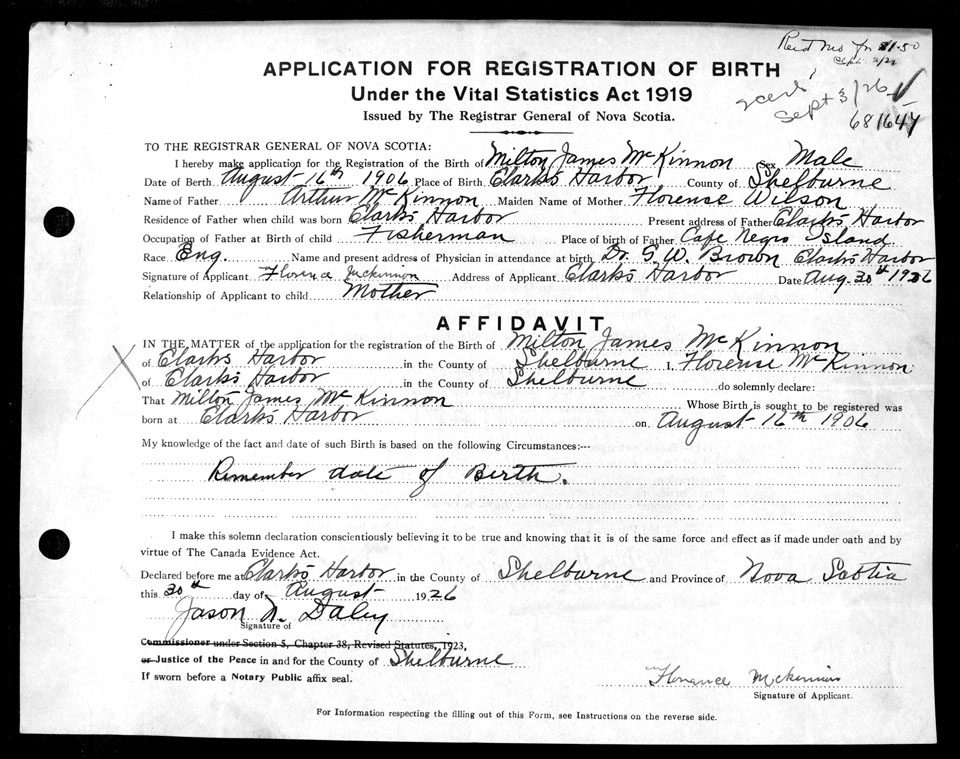 Recd mo for $1.50
Sept 3/26
APPLICATION FOR REGISTRATION OF BIRTH
Under the Vital Statistics Act 1919
Sept 3/26
Issued by The Registrar General of Nova Scotia.
681644
TO THE REGISTRAR GENERAL OF NOVA SCOTIA:
I hereby make application for the Registration of the Birth of Milton James McKinnon Sex Male
Date of Berth August 16th 1906 Place of Birth Clarks Harbor County of Shelburne
Name of Father Arthur McKinnon Maiden Name of Mother Florense Wilson
Residence of Father when child was born Clarks Harbor Present address of Father Clarks Harbor
Occupation of Father at Birth of child Fisherman Place of birth of Father Cape Negro Island
Race Eng. Name and present address of Physician in attendance at birth Dr. G. W. Brown Clarks Harbor
Signature of Applicant Florence Mckinnon Address of Applicant Clarks Harbor Date Aug. 30th 1926
Relationship of Applicant to child Mother
AFFIDAVIT
IN THE MATTER of the application for the registration of the Birth of Milton James McKinnon
of Clarks Harbor in the County of Shelburne I, Florense McKinnon
of Clarks Harbor in the County of Shelburne do solemnly declare:
That Milton James McKinnon Whose Birth is sought to be registered was
born at Clarks Harbor on August 16th 1906
My knowledge of the fact and date of such Birth is based on the following Circumstances:--
Remember date of Berth.
I make this solemn declaration conscientiously believing it to be true and knowing that it is of the same force and effect as if made under oath and by
virtue of The Canada Evidence Act.
Declared before me at Clarks Harbor in the County of Shelburne and Province of Nova Scotia
this 30th day of August 1926
Jason D. Daley
Signature of
Commissioner under Section 5, Chapter 38, Revised Statutes, 1923,
or Justice of the Peace in and for the County of Shelburne
If sworn before a Notary Public affix seal.
Florance Mckinnon
Signature of Applicant.
For Information respecting the filling out of this Form, see Instructions on the reverse side.